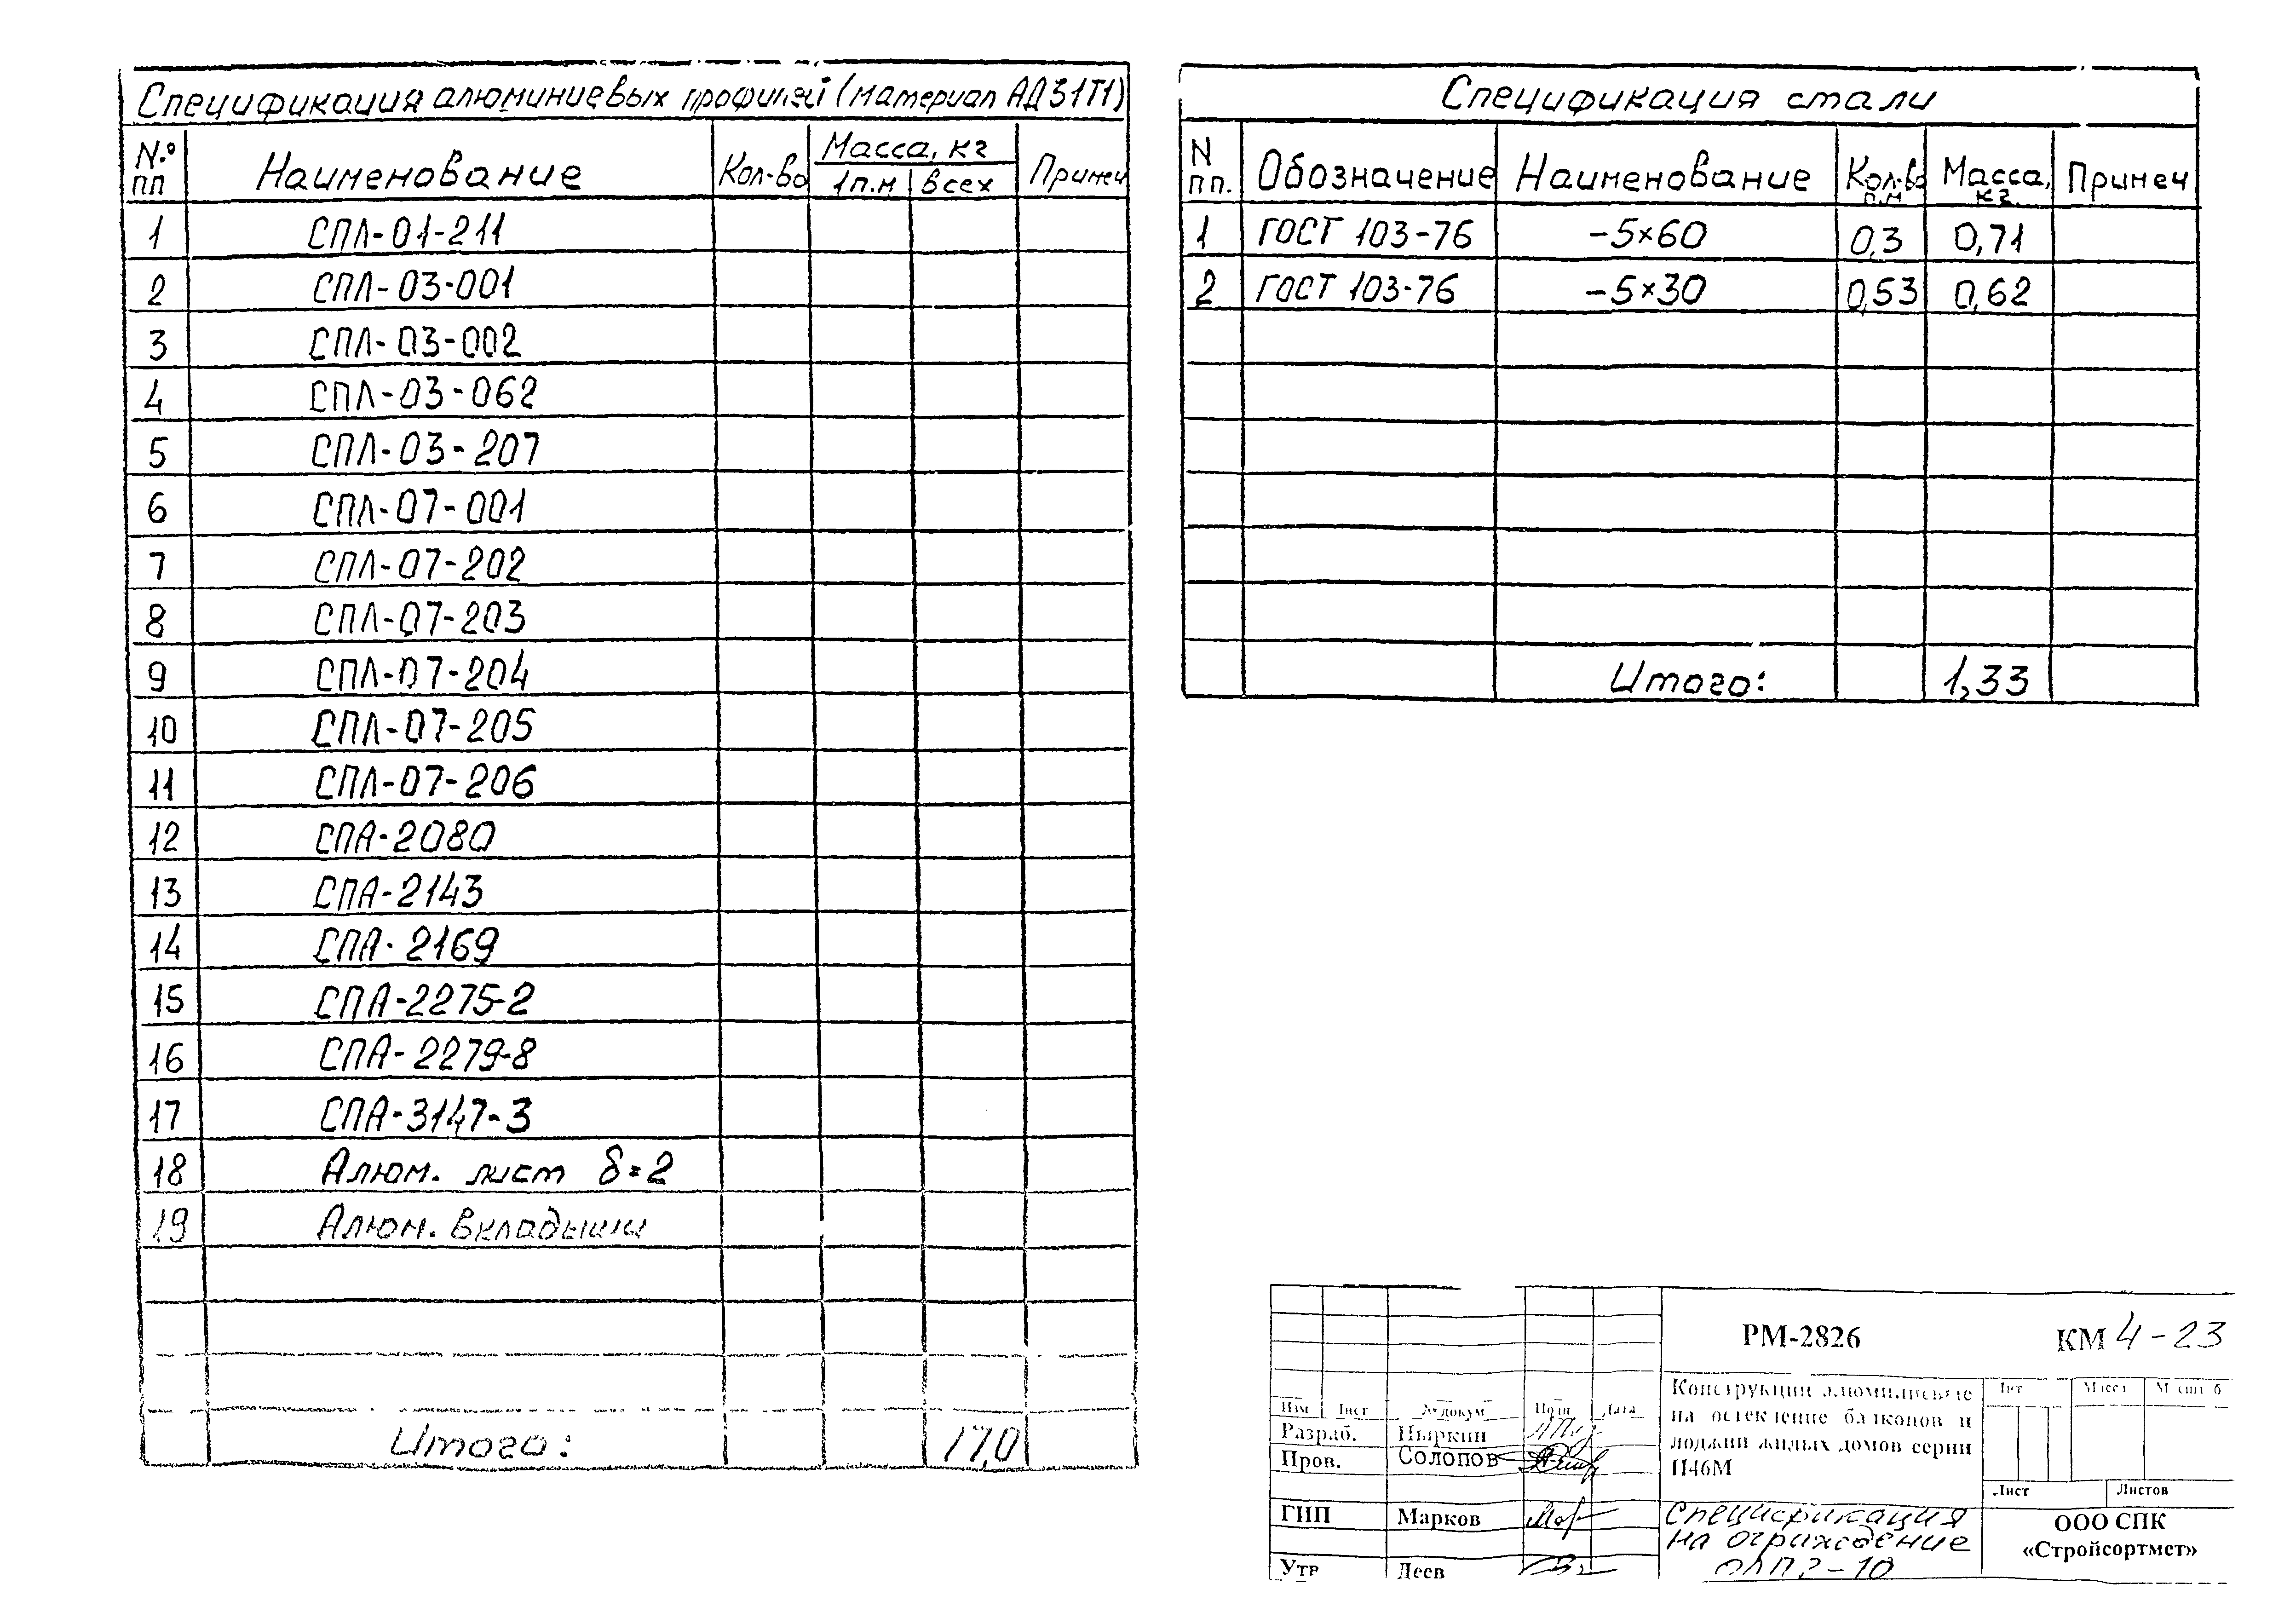 Спецификация алюминиевых профилей (материал АД31Т1)
N.º пп Наименование Кол-во Масса, кг 1п.м всех Примеч
1 СПЛ-01-211
2 СПЛ-03-001
3 СПЛ-03-002
4 СПЛ-03-062
5 СПЛ-03-207
6 СПЛ-07-001
7 СПЛ-07-202
8 СПЛ-07-203
9 СПЛ-07-204
10 СПЛ-07-205
11 СПЛ-07-206
12 СПА-2080
13 СПА-2143
14 СПА-2169
15 СПА-2275-2
16 СПА-2279-8
17 СПА-3147-3
18 Алюм. лист δ=2
19 Алюм. вкладыши
Итого: 17,0
Спецификация стали
N пп. Обозначение Наименование Кол-во п.м Масса, кг. Примеч
1 ГОСТ 103-76 -5×60 0,3 0,71
2 ГОСТ 103-76 -5×30 0,53 0,62
Итого: 1,33
РМ-2826 КМ 4-23
Изм Лист № докум Подп Дата
Разраб. Пыркин
Пров. Солопов
ГИП Марков
Утв Деев
Конструкции алюминиевые
на остекление балконов и
лоджий жилых домов серии
П46М
Лит Масса Масштаб
Лист Листов
Спецификация
на ограждение
ОЛП2-10
ООО СПК
«Стройсортмет»